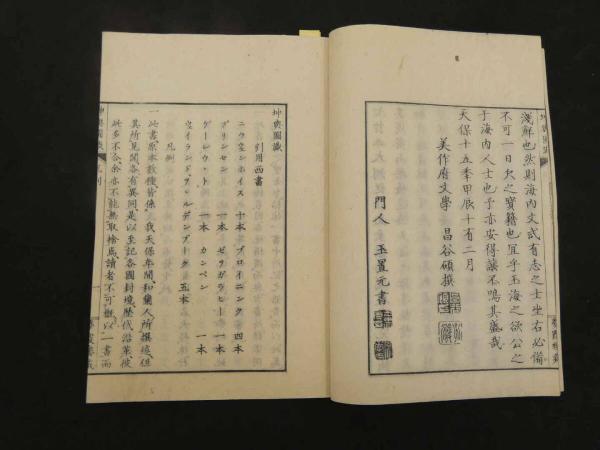 淺鮮也然則海内文武有志之士坐右必備
不可一日欠之寶籍也宜乎玉海之欲公之
于海内人士也予亦安得讓不鳴其盛哉
天保十五季甲辰十有二月
美作府文學 昌谷碩撰
門人 玉置元書
坤輿圖識
引用西書
ニウエンホイス 十本 プロイニング 四本
プリンセン 一本 ゼヲガラヒー 一本
ゲーレウ、ト 一本 カンペン 一本
ウェイランドヲールデンブーク 五本
凡例
一 此書、原本數種、皆係、我天保年間、和蘭人所撰述、但
其所見聞各有異同是以至記各國封境歷代沿革彼
此多不合余亦不能無取捨焉讀者不可概以一書而
坤輿圖識
凡例